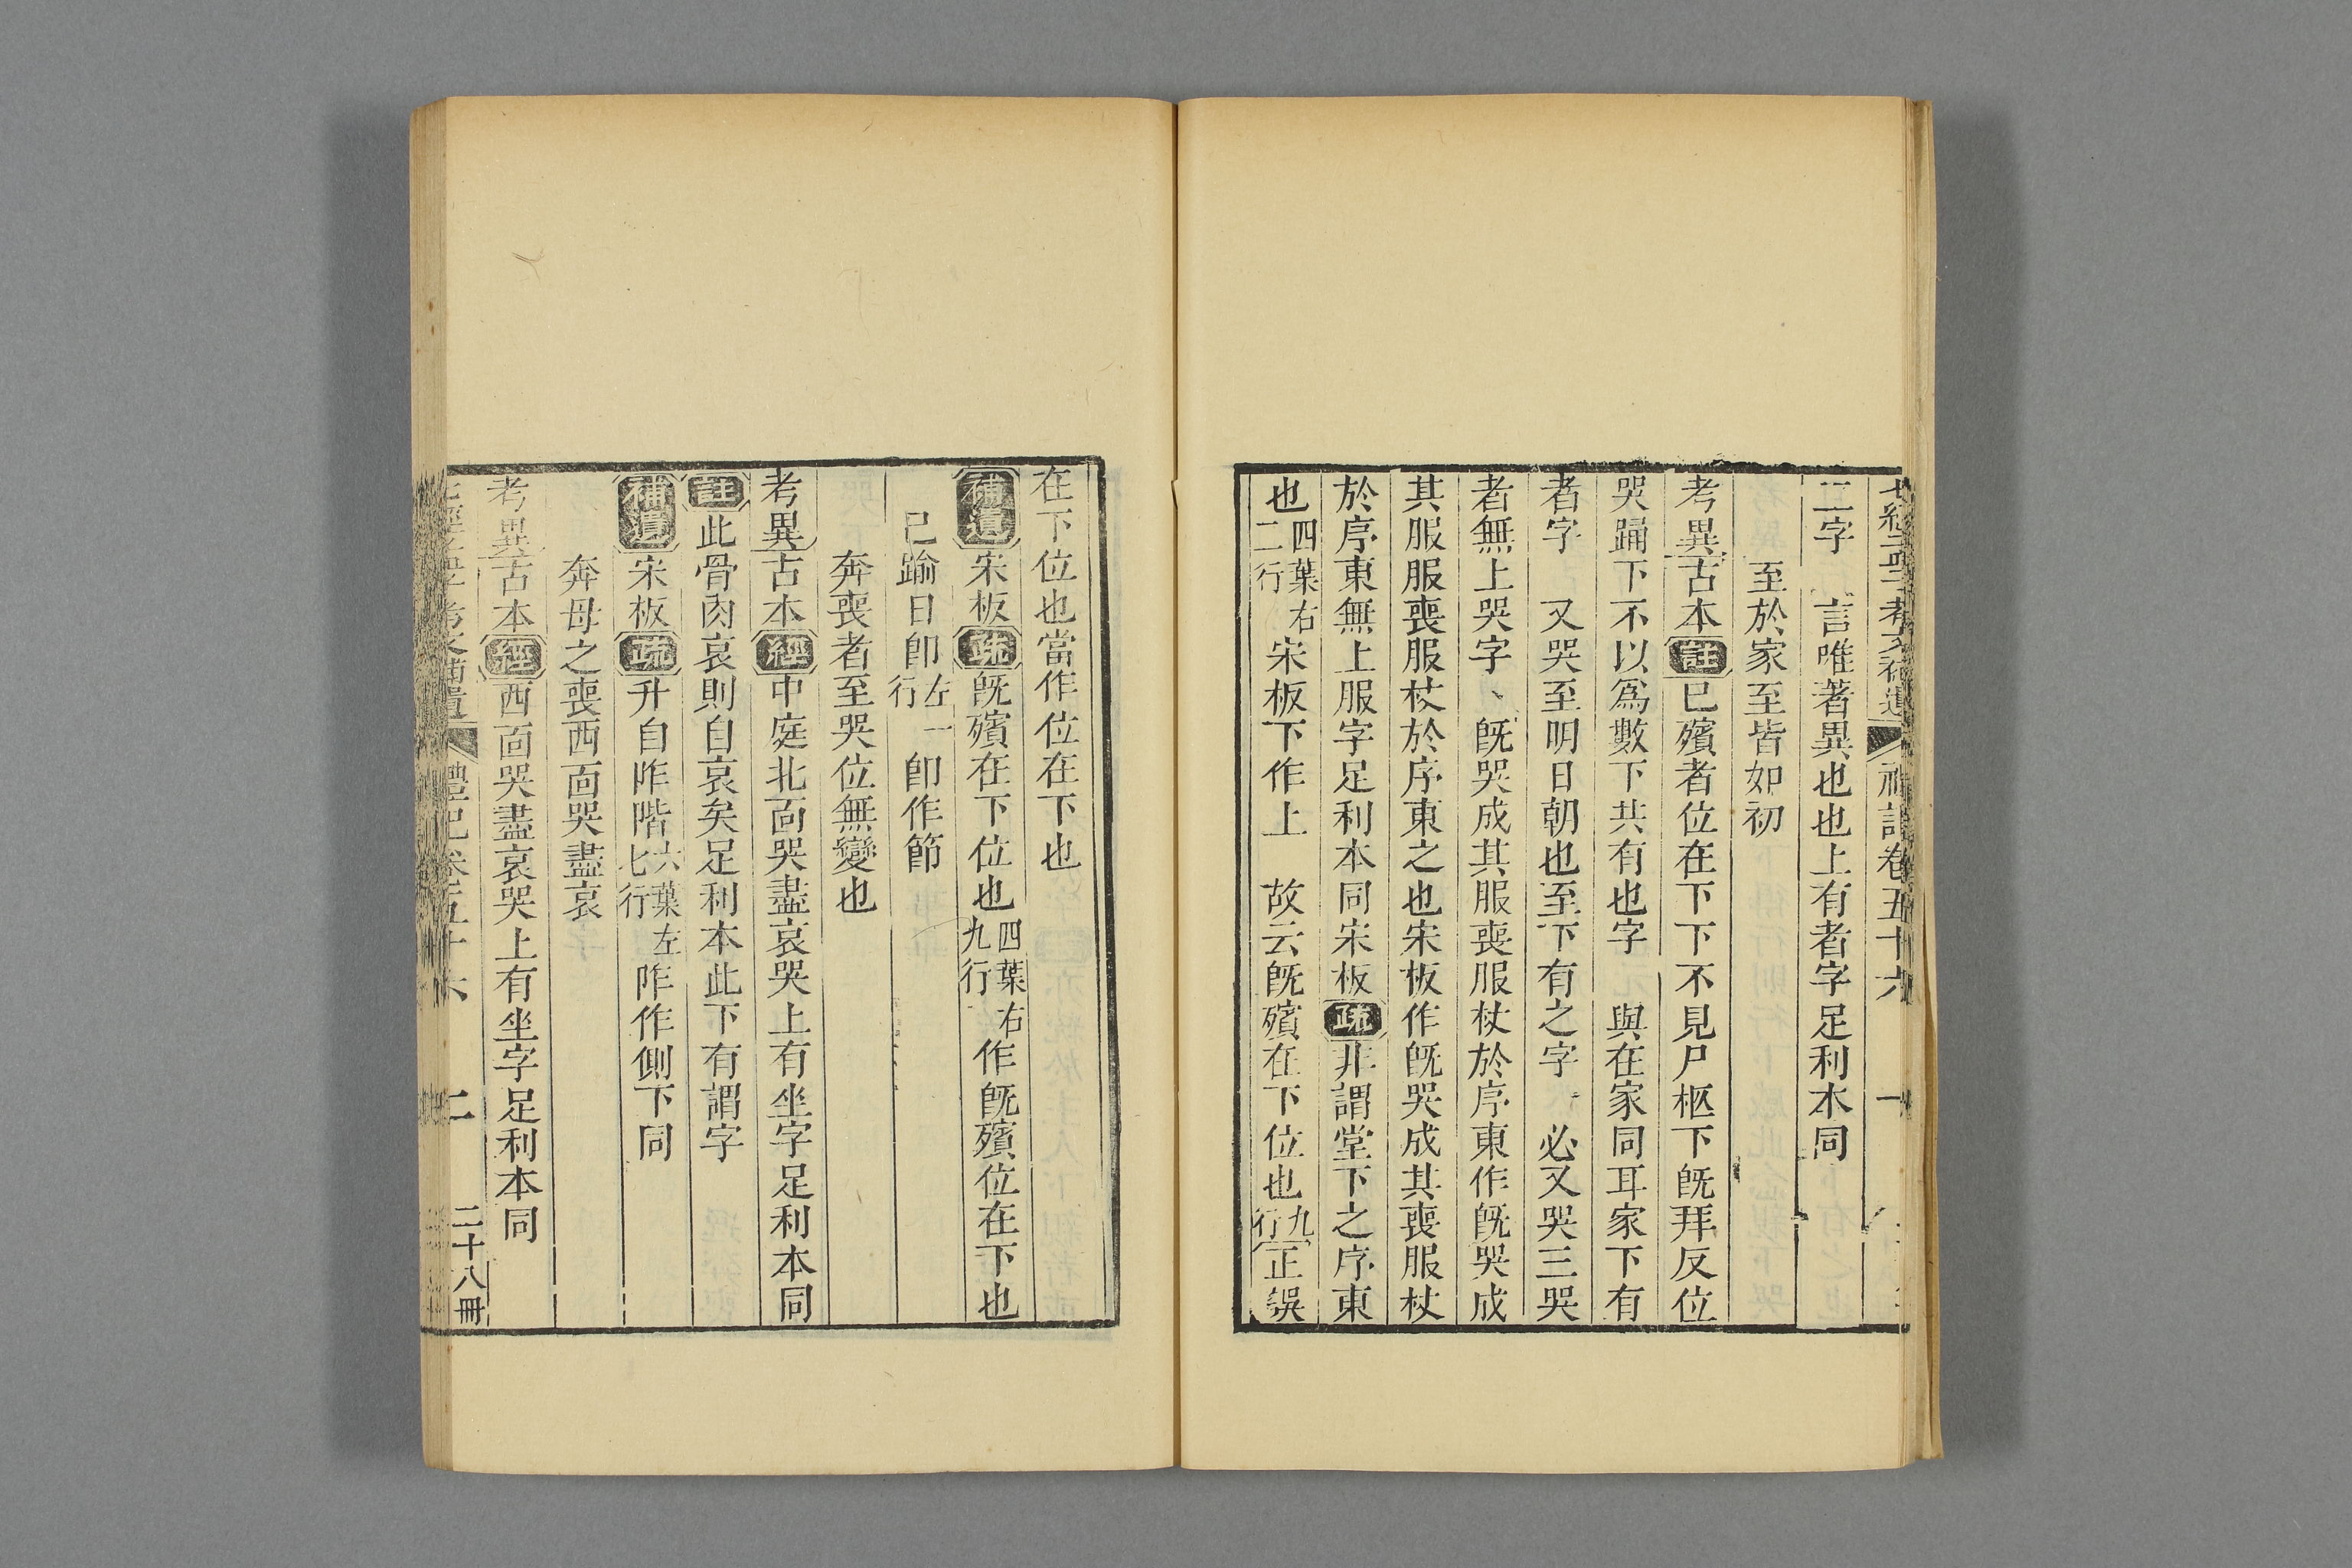 二字　言唯著異也也上有者字足利本同
至於家至皆如初
考異古本註已殯者位在下下不見尸柩下旣拜反位
哭踊下不以爲數下共有也字　與在家同耳家下有
者字　又哭至明日朝也至下有之字　必又哭三哭
者無上哭字、旣哭成其服喪服杖於序東作旣哭成
其服服喪服杖於序東之也宋板作旣哭成其喪服杖
於序東無上服字足利本同宋板疏非謂堂下之序東
也四葉右二行宋板下作上　故云旣殯在下位也九行正誤
在下位也當作位在下也
補遺宋板疏旣殯在下位也四葉右九行作旣殯位在下也
已踰日卽左一行卽作節
奔喪者至哭位無變也
考異古本經中庭北面哭盡哀哭上有坐字足利本同
註此骨肉哀則自哀矣足利本此下有謂字
補遺宋板疏升自阼階六葉左七行阼作側下同
奔母之喪西面哭盡哀
考異古本經西面哭盡哀哭上有坐字足利本同
二　二十八冊